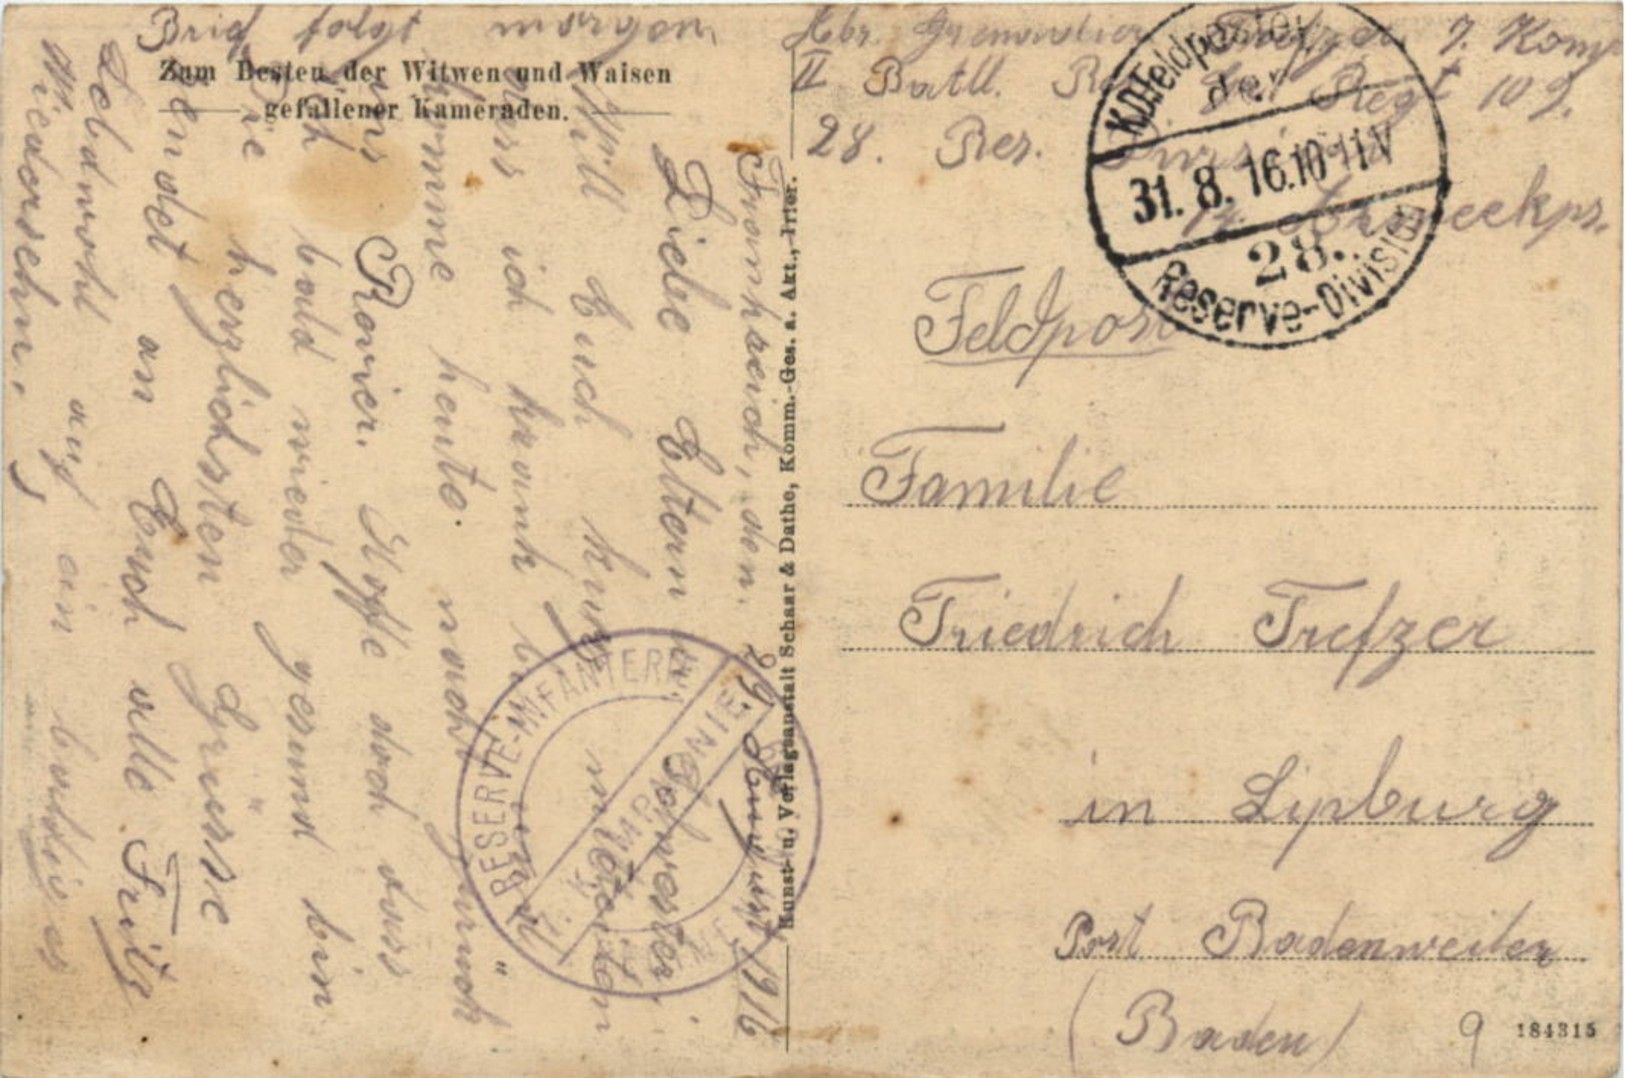 Brief folgt morgen.
Zum Besten der Witwen und Waisen
gefallener Kameraden.
Frankreich, den. 29. August 1916
Liebe Eltern u. Schwester.
Will Euch kurz mitteilen
dass ich krank bin
komme heute noch zurück
ins Revier. Hoffe doch dass
ich bald wieder gesund bin
Die herzlichsten Grüsse
sendet an Euch alle Fritz
Lebdwohl auf ein baldiges
Wiedersehn.
Kunst- u. Verlagsanstalt Schaar & Dathe, Komm.-Ges. a. Akt., Trier.
RESERVE-INFANTERIE
7. KOMPAGNIE
Abs. Grenadier Trefzer 7. Komp
II Batll. Res. Regt 109.
28. Res.
K.D. Feldpostexp.
der
31. 8. 16. 10-11 V
28.
Reserve-Division
Feldpost
Familie
Friedrich Trefzer
in Lipburg
Post Badenweiler
(Baden)
9
184315